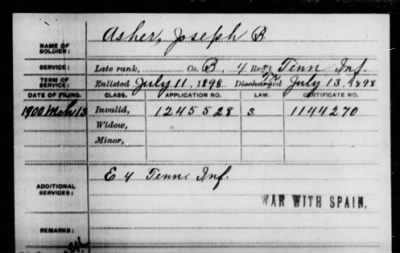 Asher, Joseph B
NAME OF SOLDIER:
SERVICE: Late rank, Co. B, 4 Reg't Tenn Inf.
TERM OF SERVICE: Enlisted July 11, 1898 Discharged July 13, 1898
DATE OF FILING. CLASS. APPLICATION NO. LAW. CERTIFICATE NO.
1900 Mch 13 Invalid, 1245528 1144270
Widow,
Minor,
ADDITIONAL SERVICES: E 4 Tenn Inf.
WAR WITH SPAIN.
REMARKS: